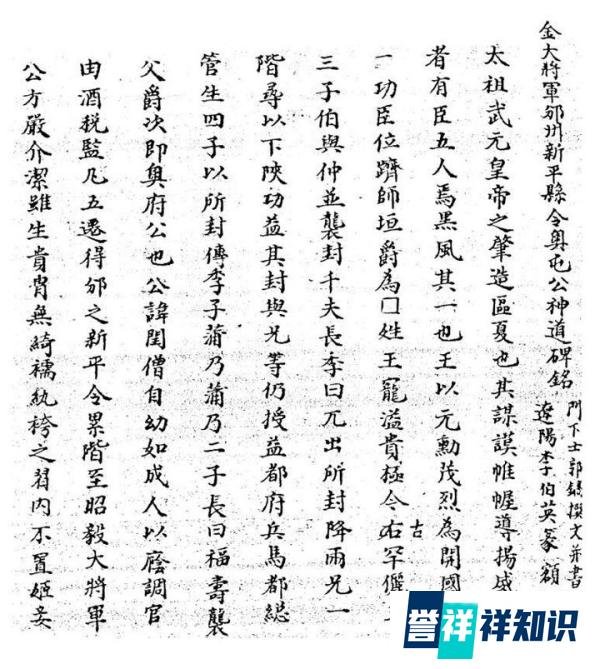 金大將軍邠州新平縣令奧屯公神道碑銘
門下士郭鎡撰文并書
遼陽李伯英篆額
太祖武元皇帝之肇造區夏也其謀謨帷幄導揚威
者有臣五人焉黑風其一也王以元勳茂烈為開國
一功臣位躋師垣爵為□姓王寵溢貴極令古右罕儷
三子伯與仲並襲封千夫長季曰兀出所封降兩兄一
階尋以下陝功益其封與兄等仍授益都府兵馬都總
管生四子以所封傳季子蒲乃蒲乃二子長曰福壽襲
父爵次即奧府公也公諱閏僧自幼如成人以廕調官
由酒稅監凡五遷得邠之新平令累階至昭毅大將軍
公方嚴介潔雖生貴胄無綺襦紈袴之習內不置姬妾
誉祥祥知识